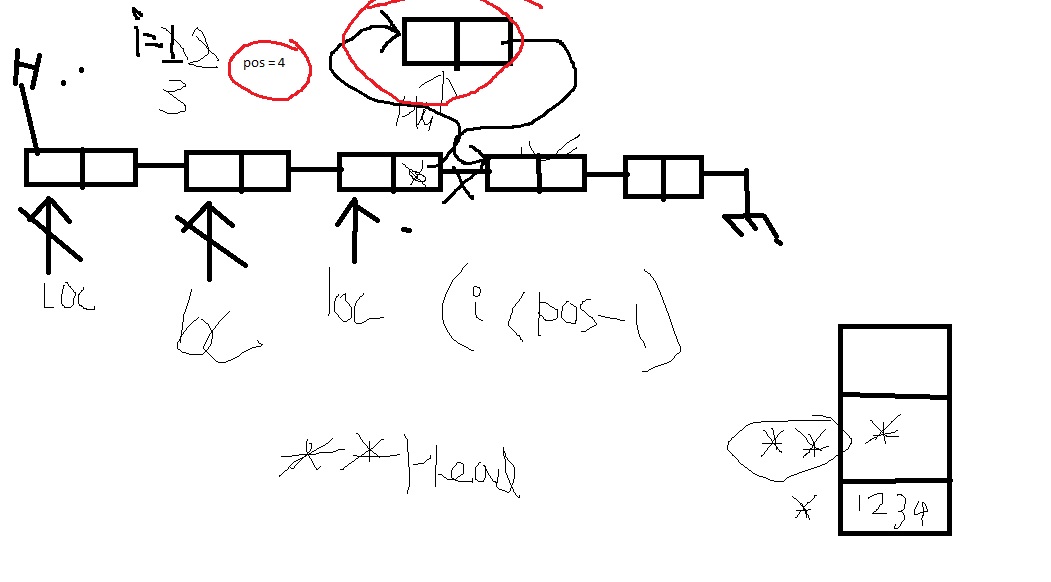 i = 1 2
3
pos = 4
H
loc
loc
loc
(i < pos-1)
**Head
** *
* 1234